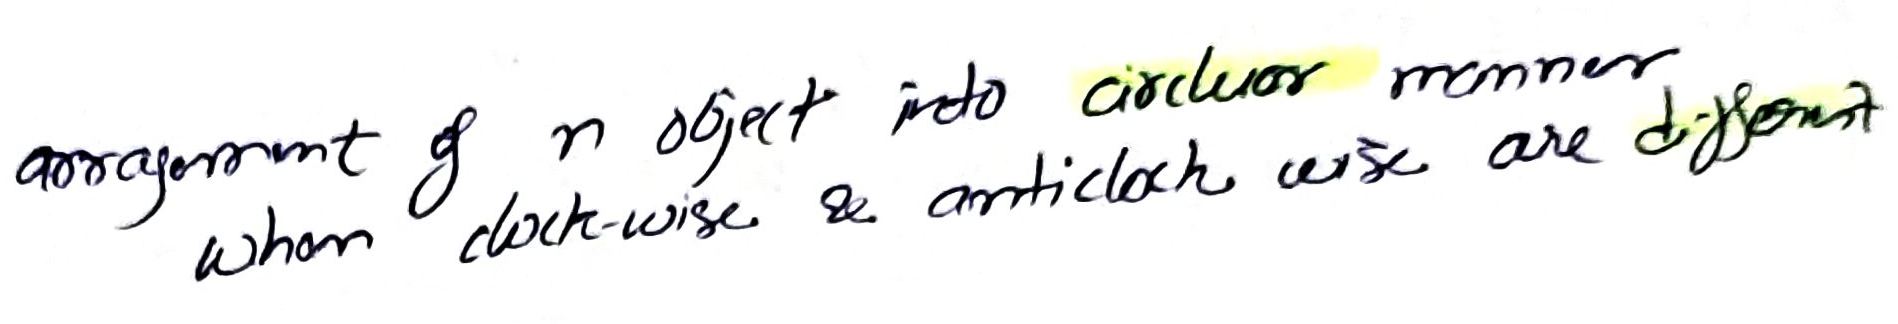 arragement of n object into circluor manner
when clock-wise & anticlock wise are different